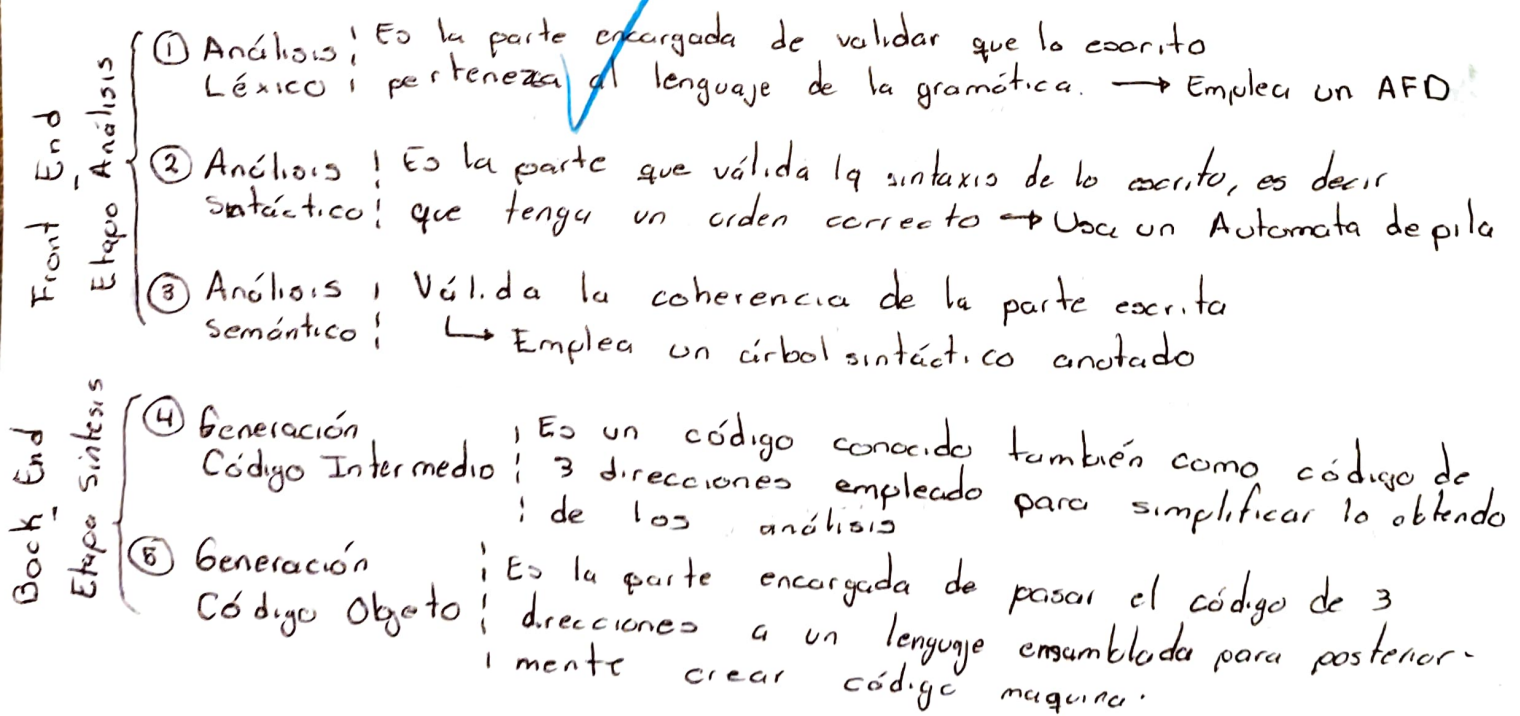 Front End
Etapa Análisis
① Análisis Es la parte encargada de validar que lo escrito
Léxico pertenezca al lenguaje de la gramática. → Emplea un AFD
② Análisis Es la parte que válida la sintaxis de lo escrito, es decir
Sintáctico que tenga un orden correcto → Usa un Automata de pila
③ Análisis Válida la coherencia de la parte escrita
Semántico ↳ Emplea un árbol sintáctico anotado
Back End
Etapa Sintesis
④ Generación Es un código conocido también como código de
Código Intermedio 3 direcciones empleado para simplificar lo obtendo
de los análisis
⑤ Generación Es la parte encargada de pasar el código de 3
Código Objeto direcciones a un lenguaje ensamblada para posterior-
mente crear código maquina.